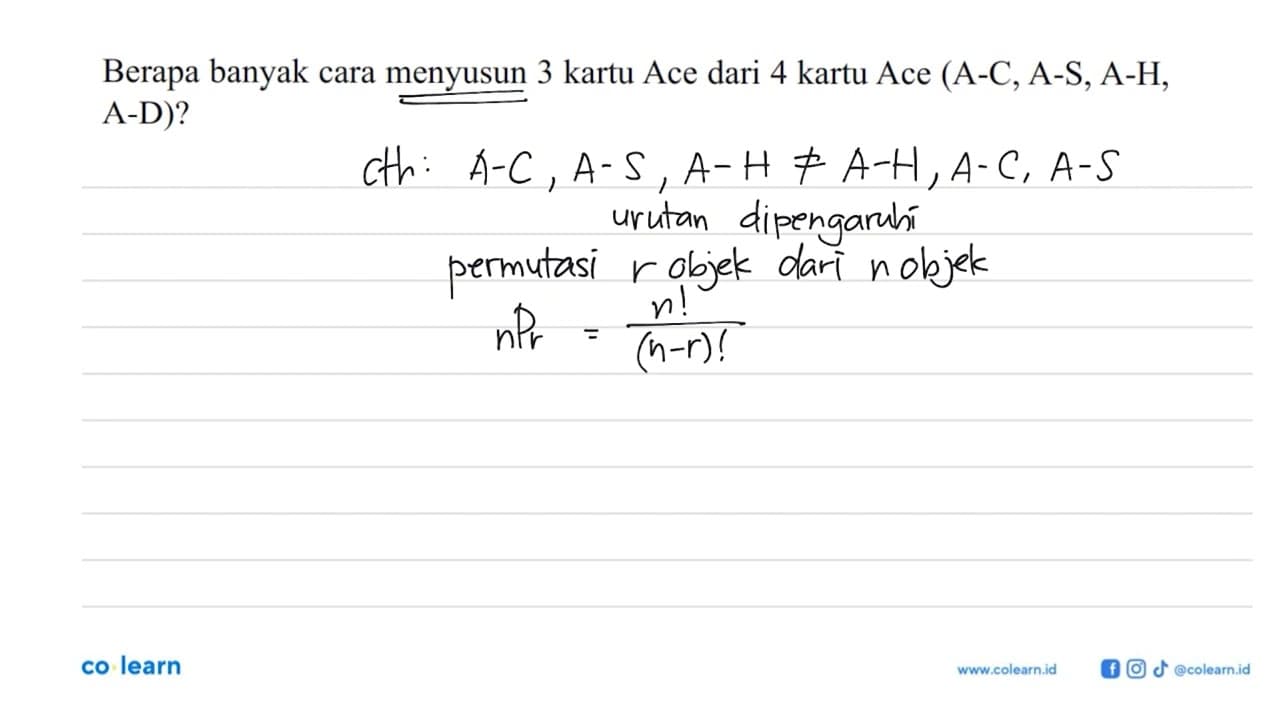 Berapa banyak cara menyusun 3 kartu Ace dari 4 kartu Ace (A-C, A-S, A-H,
A-D)?
cth: A-C, A-S, A-H ≠ A-H, A-C, A-S
urutan dipengaruhi
permutasi r objek dari n objek
nPr = n!/(n-r)!
co learn
www.colearn.id
@colearn.id